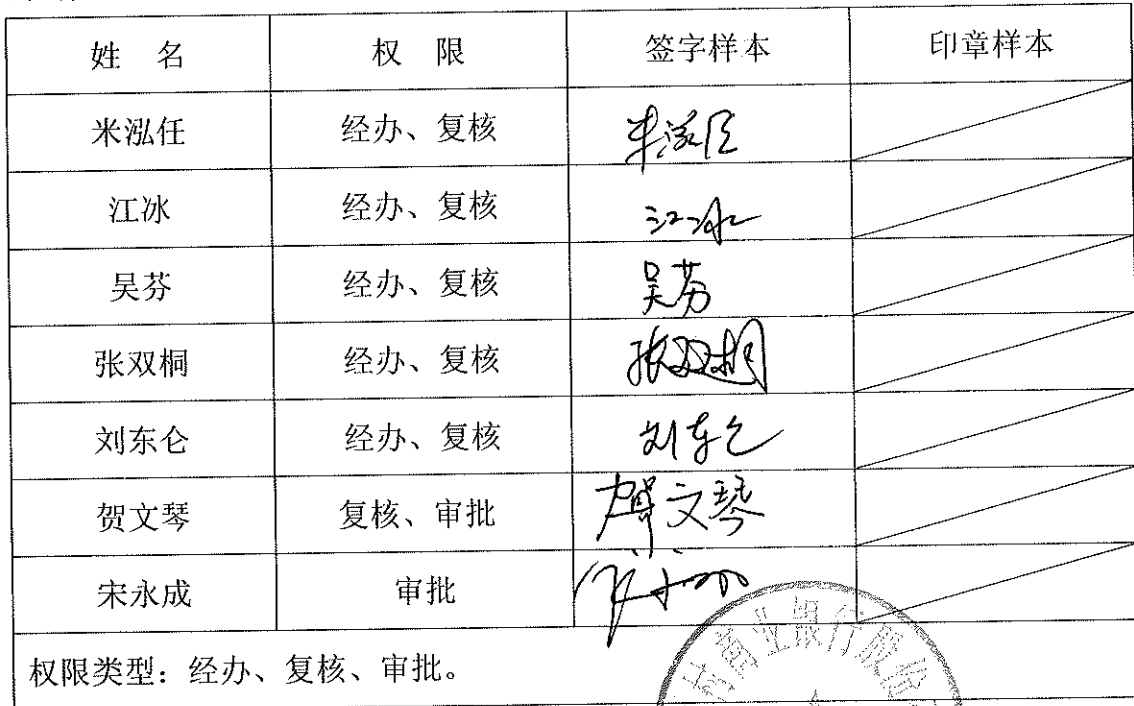 姓 名 权 限 签字样本 印章样本
米泓任 经办、复核 米泓任
江冰 经办、复核 江冰
吴芬 经办、复核 吴芬
张双桐 经办、复核 张双桐
刘东仑 经办、复核 刘东仑
贺文琴 复核、审批 贺文琴
宋永成 审批
权限类型：经办、复核、审批。
商业银行股份